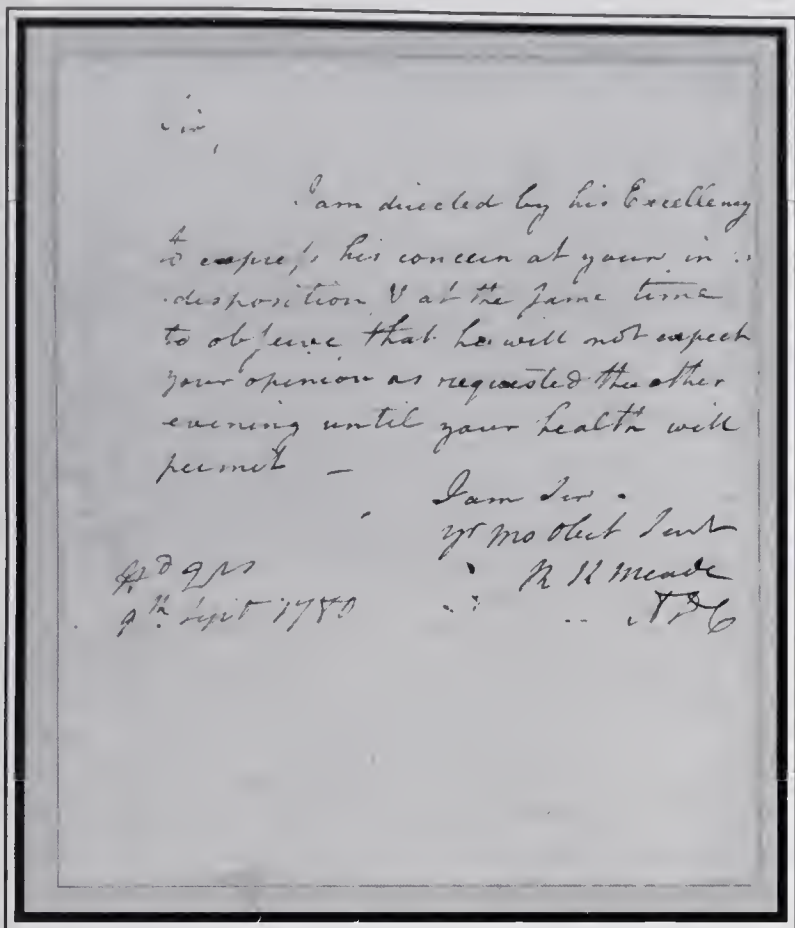 Sir,
I am directed by his Excellency
to expreſs his concern at your in :
disposition & at the ſame time
to obſerve that he will not expect
your opinion as requested the other
evening until your health will
permit —
I am Sir
yr mo Obet Servt
R K Meade
ADC
Hd Qrs
9th Sept 1780